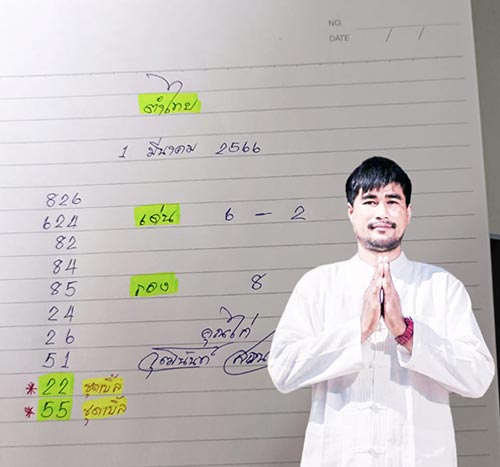 NO.
DATE / /
ลำไทย
1 มีนาคม 2566
826
624 เด่น 6 - 2
82
84
85 รอง 8
24
26
51
* 22 ชุดเบิ้ล
* 55 ชุดเบิ้ล